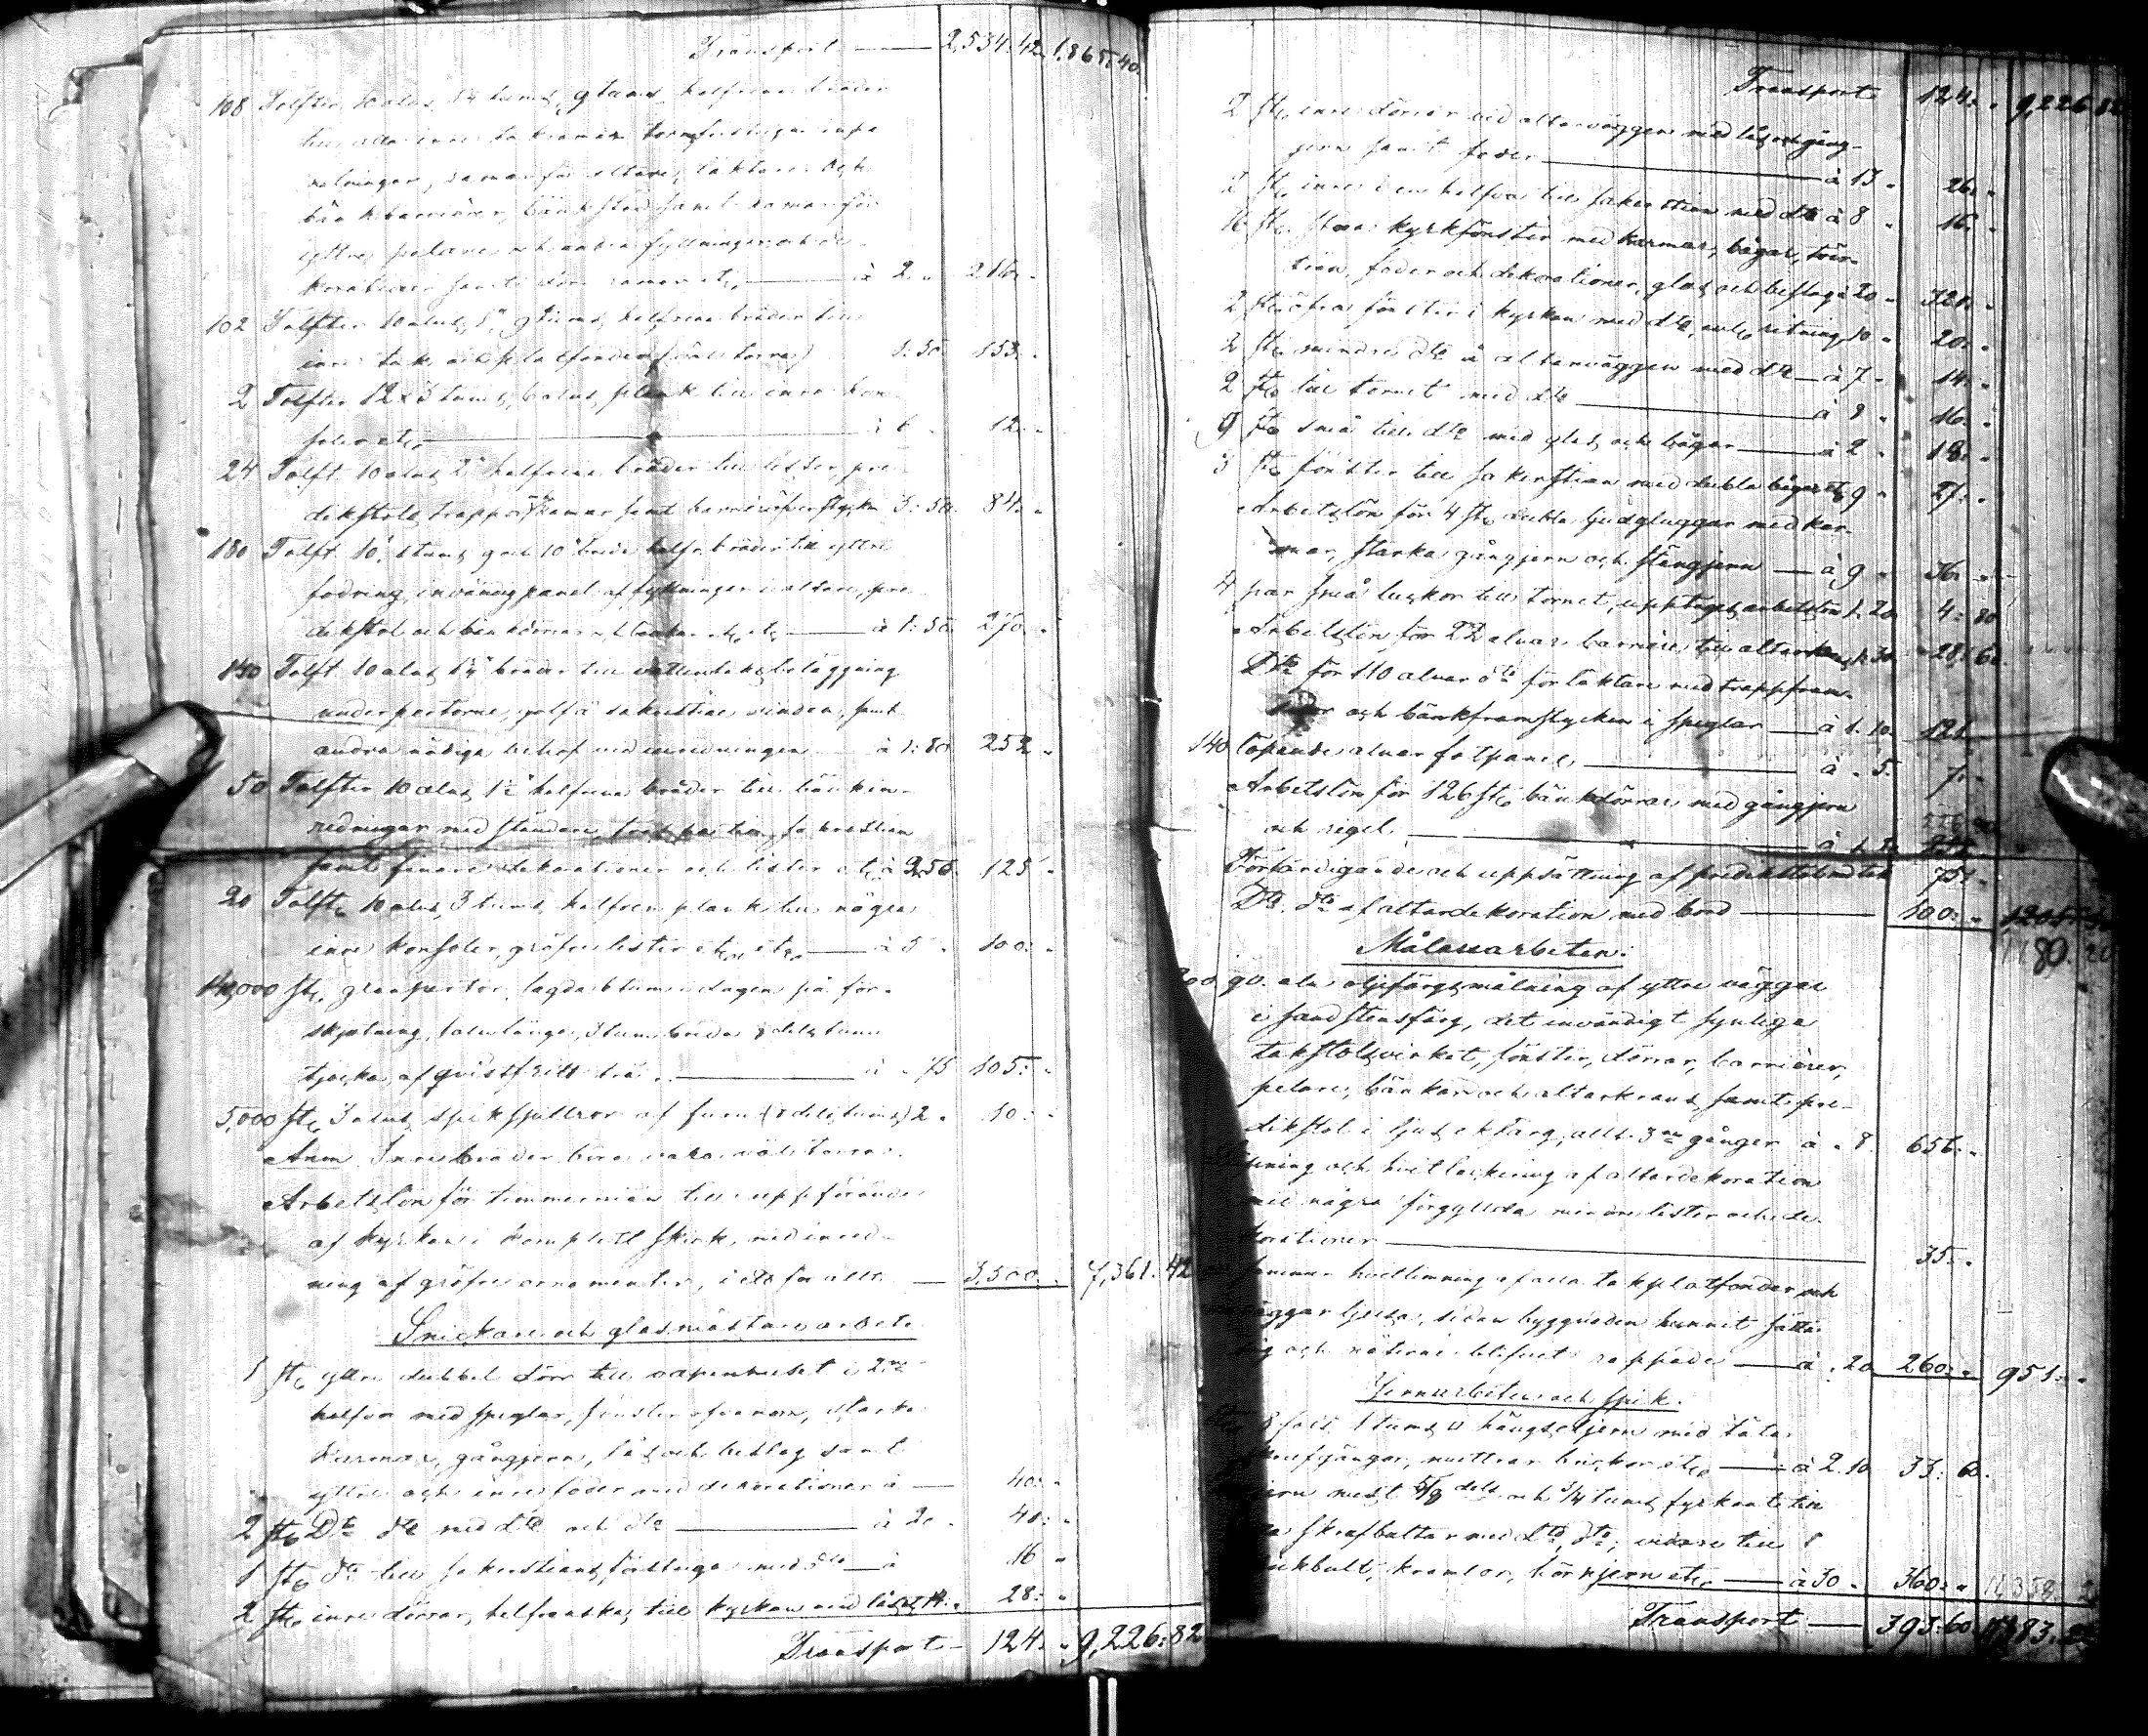 Transport — 2,534.42. 1,865.40.
108 Tolfter 10 alns 1¼ tums, 9 tums, helfrena bräder
till alla inre
, ramar för altare, läktare och
bänkbarrierer, bänkstöd samt ramar för
yttre pelare och andra fyllningar och de-
korationer samt dörr ramar etc. — à 2. „ 216. „
102 Tolfter 10 alns, 1", 9 tums, helfrena bräder till
inre tak och plafonder (väl torra) 1:50. 153. „
2 Tolfter 12 x 3 tums, 6 alns, plank till inre kon-
soler etc. — à 6 „ 12. „
24 Tolft. 10 alns 2" helfrena bräder till lister, pre-
dikstols, trappor, ramar samt barrieröfverstycken 3:50. 84. „
180 Tolft. 10', 1 tums 9 och 10" breda helfr. bräder till yttre
fodring, invändig panel af fyllningar i altare, pre-
dikstol och bänkdörrar etc. etc. — à 1:50. 270. „
140 Tolft 10 alns 1¼" bräder till vattentaksbeläggning
under pertorne, golf i sakristia, vinden, samt
andra nödiga behof vid inredningen à 1:80 252 „
50 Tolfter 10 alns 1½" helfrena bräder till bänkin-
redningar med ständare, sakristian
samt finare dekorationer och lister etc. à 2,50. 125 „
20 Tolft. 10 alns, 3 tums, helfren plank till några
inre konsoler, gröfre lister etc. etc. — à 5 „ 100. „
140,000 st. granpertor, lagda 6 tum i dagen på för-
skjutning, 1 aln långa, 3 tum breda dels tum
tjocka, af qvistfritt trä. — à „ 75 105. „
5,000 st. 3 alns, spikspillror af furu ( dels tums) 2 „ 10. „
Anm Inre bräder böra vara väl torra.
Arbetslön för timmermän till uppförande
af kyrkan i komplett skick, med inred-
ning af gröfre ornamenter, i ett för allt — 3,500. „ 7,361.42
Snickare och glasmästare arbete.
1 st. yttre dubbel dörr till vapenhuset i 2ne
halfvor med speglar, fönster ofvanom, starka
karmar, gångjern, lås och beslag samt
yttre och inre foder med dekorationer à — 40. „
2 st. Dto dto med dto och dto — à 20 „ 40. „
1 st. dto till sakristians förstuga med dto — à 16 „
2 st. inre dörrar, helfranska, till kyrkan med lås etc. 14. „ 28. „
Transport — 124. „ 9,226:82
Transport 124. „ 9,226.82
2 st. inre dörrar vid altarväggen med lås och gång-
jern samt foder — à 13 „ 26. „
2 st. inre i en halfva till sakristian med dto à 8 „ 16. „
16 st. stora kyrkfönster med karmar, bågar,
foder och dekorationer, glas och beslag à 20 „ 320. „
2 st. öfra fönster i kyrkan med dto, enl. ritning 10 „ 20. „
2 st. mindre dto å altarväggen med dto — à 7 „ 14. „
2 st. till tornet med dto — à 8 „ 16. „
9 st. små till dto med glas och bågar — à 2 „ 18. „
3 st. fönster till sakristian med dubbla bågar etc. 9 „ 27. „
Arbetslön för 4 st. dubbla ljudgluggar med kar-
mar, starka gångjern och stängjern — à 9 „ 36. „
4 par små luckor till tornet, upptages arbetslön 1.20 4:80
Arbetslön för 22 alnar barriere till altarkrans, 1.30 28:60.
Dto för 110 alnar dto för läktare med trappfram-
sidor och bänkframstycken i speglar — à 1.10. 121
140 löpande alnar fotpanel — à „ 5. 7. „
Arbetslön för 126 st. bänkdörrar med gångjern
och regel.
Förfärdigande och uppsättning af predikstol med tak 75. „
Dto. dto af altardekoration med bord — 100. „ 1205.
1180.20
Målarearbeten:
qv. aln oljefärgsmålning af yttre väggar
i sandstensfärg, det invändigt synliga
takstolsvirket, fönster, dörrar, barrierer,
pelare, bänkar och altarkrans samt pre-
dikstol i ljus ekfärg, allt 3ne gånger à „ 8. 656. „
och hvit lackering af altardekoration
med några förgyllda mindre lister och de-
korationer — 35. „
hvitlimning af alla takplatfonder och
väggar ljusa, sedan byggnaden hunnit sätta
sig och nåterne blifvit rappade — à „ 20 260. „ 951. „
Jernarbeten och spik.
8 fots 1 tums hängseljern med täta
skrufgångor, muttrar brickor etc. — à 2.10 33:60.
jern mest 5/8 dels och 3/4 tums fyrkant till
skrufbultar med dto dto; vidare till
bult, kramlor, hörnjern etc. — à 30 „ 360. „ 11,358.
Transport — 393:60